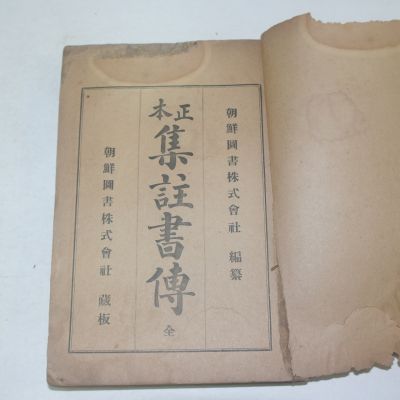 朝鮮圖書株式會社 編纂
正本 集註書傳 全
朝鮮圖書株式會社 蔵板